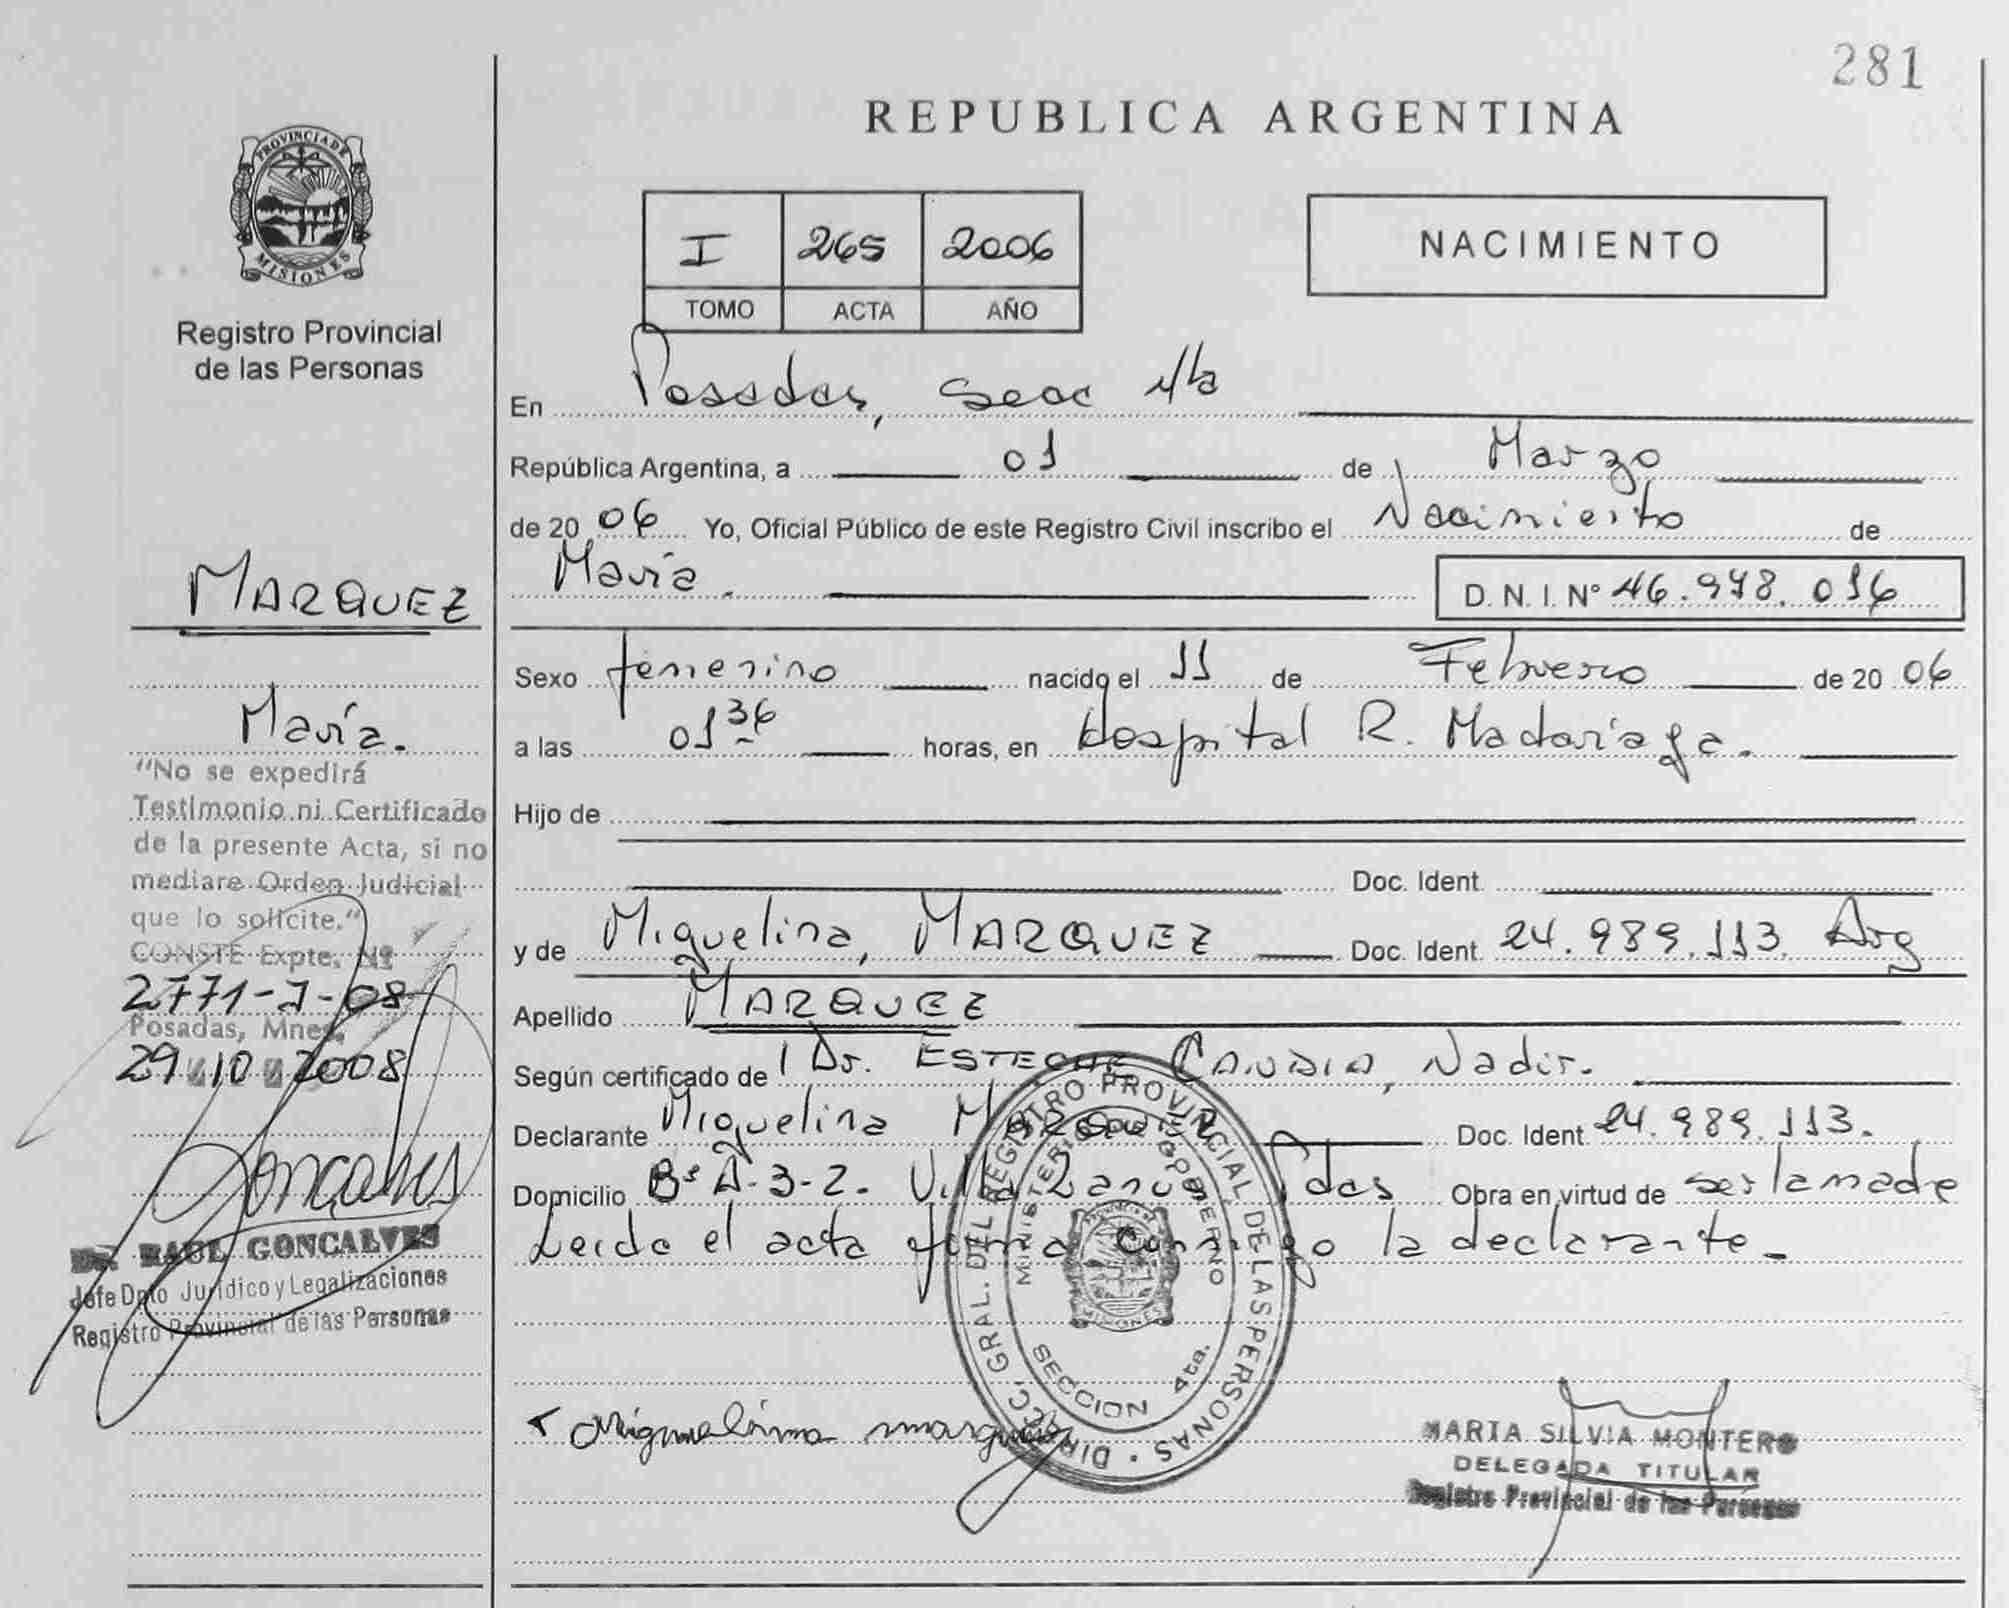 281
REPUBLICA ARGENTINA
PROVINCIA DE
MISIONES
Registro Provincial
de las Personas
I 265 2006
TOMO ACTA AÑO
NACIMIENTO
En Posadas, Secc 4ta
República Argentina, a 01 de Marzo
de 20 06 Yo, Oficial Público de este Registro Civil inscribo el Nacimiento de
María. D. N. I. Nº 46.978.016
Sexo femenino nacido el 11 de Febrero de 20 06
a las 01 36 horas, en Hospital R. Madariaga.
Hijo de
Doc. Ident.
y de Miguelina, MARQUEZ Doc. Ident. 24.989.113. Arg
Apellido MARQUEZ
Según certificado de Dr. ESTECHE CANDIA, Nadir.
Declarante Miguelina MARQUEZ Doc. Ident. 24.989.113.
Domicilio Bº A-3-2. Villa Lanus Pdas Obra en virtud de ser la madre
Leida el acta firma conmigo la declarante.
DIRECC. GRAL. DEL REGISTRO PROVINCIAL DE LAS PERSONAS
MINISTERIO DE GOBIERNO
MISIONES
SECCION 4ta.
Miguelina marquez
MARTA SILVIA MONTERO
DELEGADA TITULAR
Registro Provincial de las Personas
MARQUEZ
María.
"No se expedirá
Testimonio ni Certificado
de la presente Acta, si no
mediare Orden Judicial
que lo solicite."
CONSTE Expte. Nº
2771-J-08
Posadas, Mnes.
29 10 2008
Goncalves
DR. RAUL GONCALVES
Jefe Dpto Jurídico y Legalizaciones
Registro Provincial de las Personas